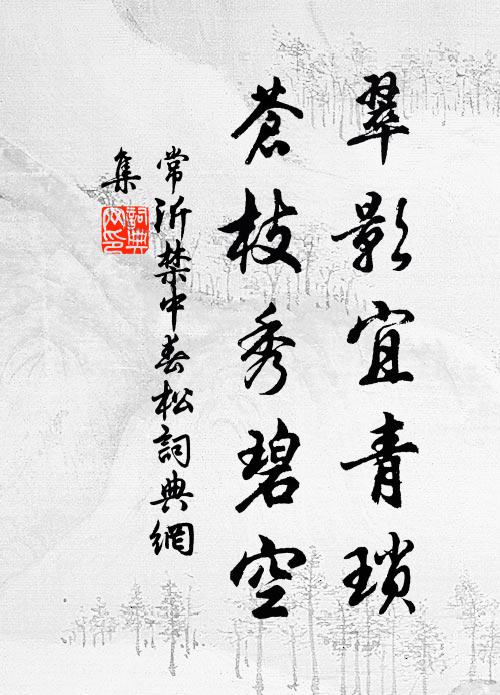 翠影宜青瑣
蒼枝秀碧空
常沂禁中春松詞典網
集
詞典網印